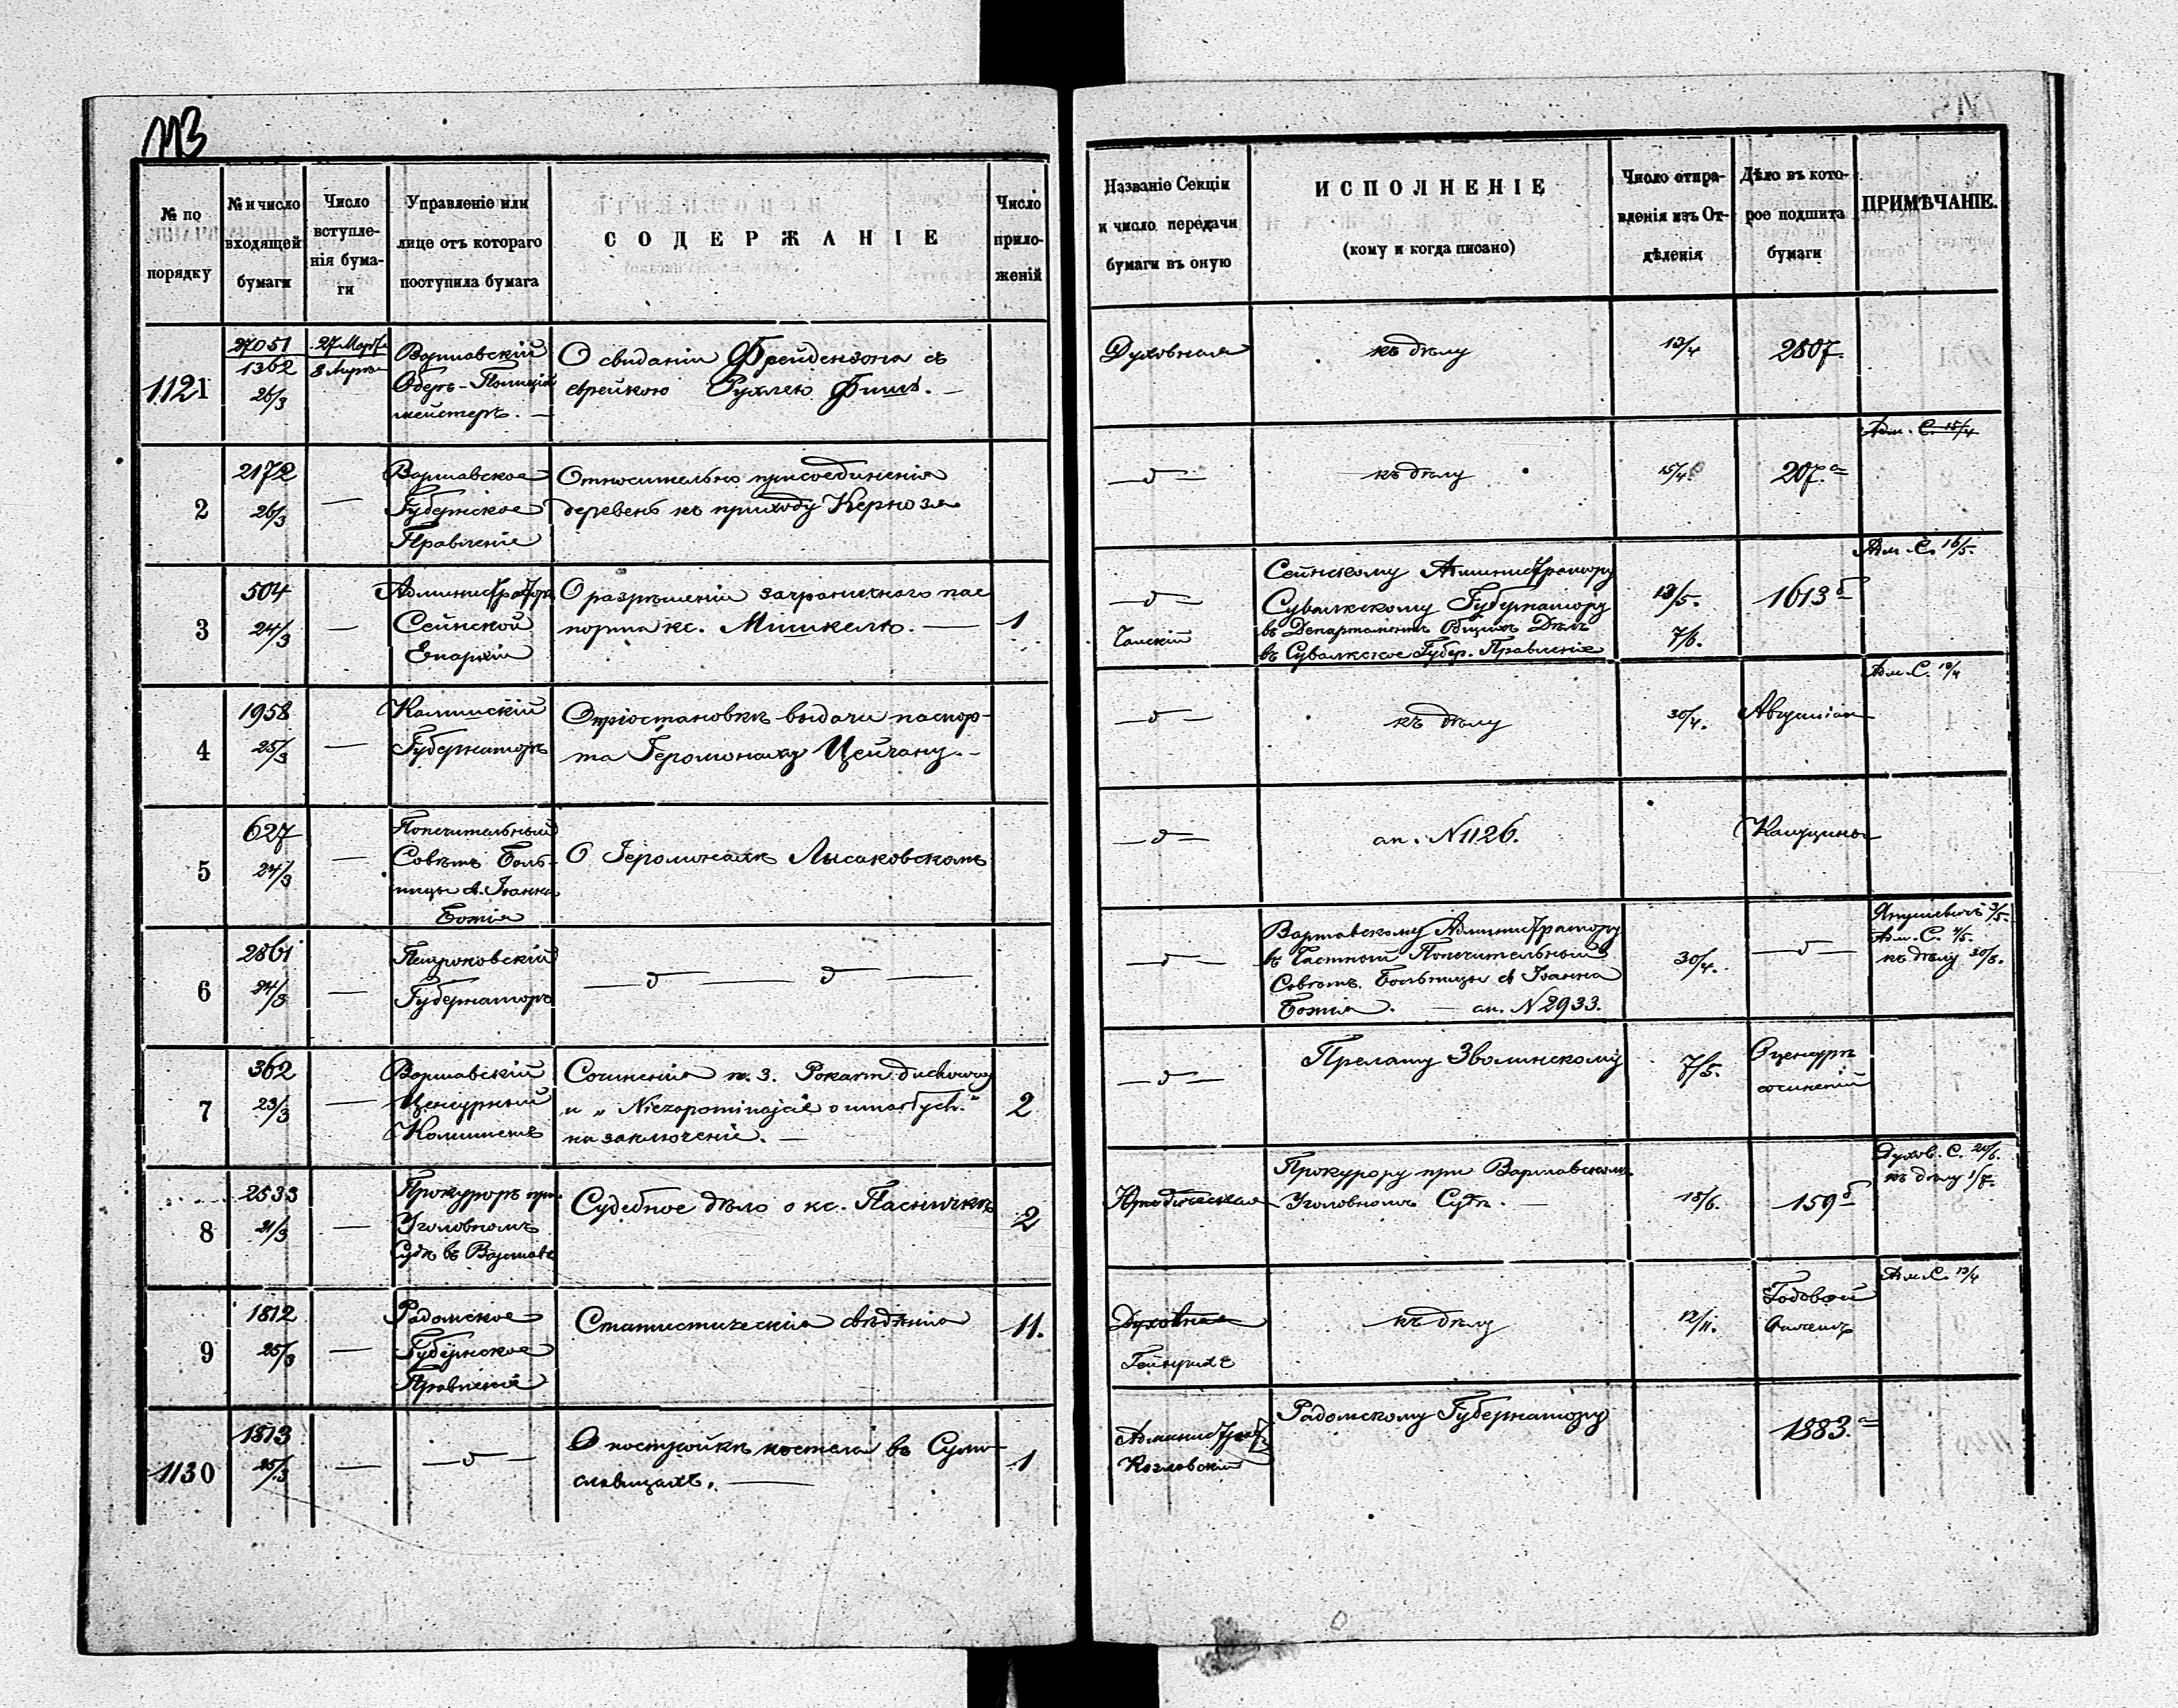 113
№ по порядку
№ и число входящей бумаги
Число вступле-нія бума-ги
Управленіе или лице отъ котораго поступила бумага
СОДЕРЖАНІЕ
Число прило-женій
Названіе Секціи и число передачи бумаги въ оную
ИСПОЛНЕНІЕ
(кому и когда писано)
Число отпра-вленія изъ От-дѣленія
Дѣло въ кото-рое подшита бумаги
ПРИМѢЧАНІЕ.
1121
27051
1362
26/3
27 Марта
8 Марта
Варшавскій
Оберъ-Полиций
мейстеръ. —
О свиданіи Фрейдензона съ
еврейкою Рухлею Фишъ. —
Духовная
къ дѣлу
13/4
2807.
2
2172
26/3
—
Варшавское
Губернское
Правленіе
Относительно присоединенія
деревень къ приходу Керноз
— д —
къ дѣлу
15/4.
207.а
Адм. С. 15/4
3
504
24/3
—
Администраторъ
Сейнской
Епархіи
О разрѣшеніи заграничнаго пас
порта кс. Мишкелю. —
1
— д —
Сейнскому Администратору
Сувалкскому Губернатору
въ Департаментъ Общихъ Дѣлъ
въ Сувалкское Губер. Правленіе
13/5.
7/6.
1613 б
Адм. С. 16/5.
4
1958
25/3
—
Калишскій
Губернаторъ
О пріостановкѣ выдачи паспор-
та Іеромонаху Цейчану. -
— д —
къ дѣлу
30/4.
Адм. С. 10/4
5
627
24/3
—
Попечительный
Совѣтъ Боль-
ницы св. Іоанна
Божія
О Іеромонахѣ Лысаковскомъ
— д —
ап. N 1126.
6
2861
24/3
—
Петроковскій
Губернаторъ
— д — д —
— д —
Варшавскому Администратору
въ Частный Попечительный
Совѣтъ Больницы св Іоанна
Божія. — ап. N 2933.
30/4.
— д —
Янушевичъ 3/5.
Адм. С. 4/5.
къ дѣлу 30/5.
7
362
23/3
—
Варшавскій
Цензурный
Комитетъ
Сочиненія п. з. Pokarm duchowny
и „ Niezapominajcie o umarłych."
на заключеніе. —
2
— д —
Прелату Зволинскому
7/5.
О цензурѣ
сочиненій
8
2533
21/3
—
Прокуроръ при
Уголовномъ
Судѣ въ Варшавѣ
Судебное дѣло о кс. Пасничкѣ
2
Юридическая
Прокурору при Варшавскомъ
Уголовномъ Судѣ. —
18/6.
159 б
Духов. С. 20/6.
къ дѣлу 1/7.
9
1812
25/3
—
Радомское
Губернское
Правленіе
Статистическія свѣдѣнія
11.
Духовная
къ дѣлу
12/11.
Годовой
Отчетъ
Адм. С. 13/4
1130
1813
25/3
—
— д —
О постройкѣ костела въ Сули-
славицахъ. —
1
Козловскій
Радомскому Губернатору
1883.а